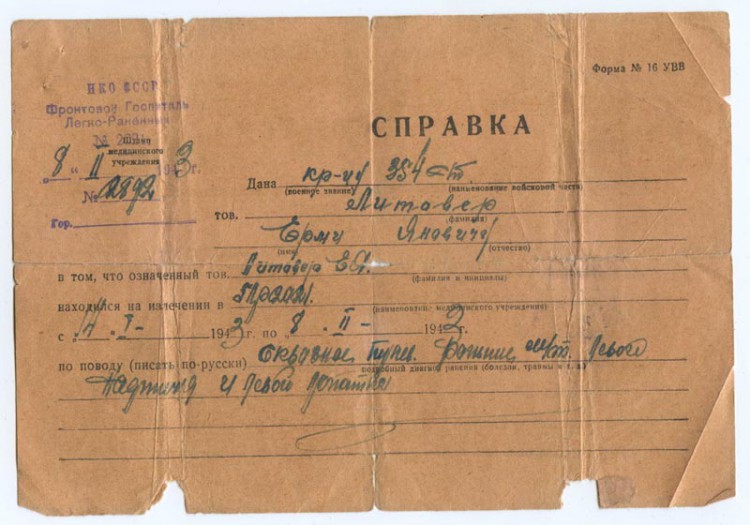 Форма № 16 УВВ
НКО СССР
Фронтовой Госпиталь
Легко-Раненных
№
Штамп
медицинского
учреждения
СПРАВКА
„8“ II 1943г.
№ 2892
Гор.
Дана кр-цу 354 сп.
(военное звание) (наименование войсковой части)
тов. Литовер
(фамилия)
Ерми Яновичу
(имя) (отчество)
в том, что означенный тов. Литовер Е.Я.
(фамилия и инициалы)
находился на излечении в
(наименование медицинского учреждения)
с „4. I- 1943г. по 8. II- 1942г.
по поводу (писать по-русски) Сквозное пулев. ранение левого
подробный диагноз ранения (болезни, травмы и т. д.)
и левой лопатки